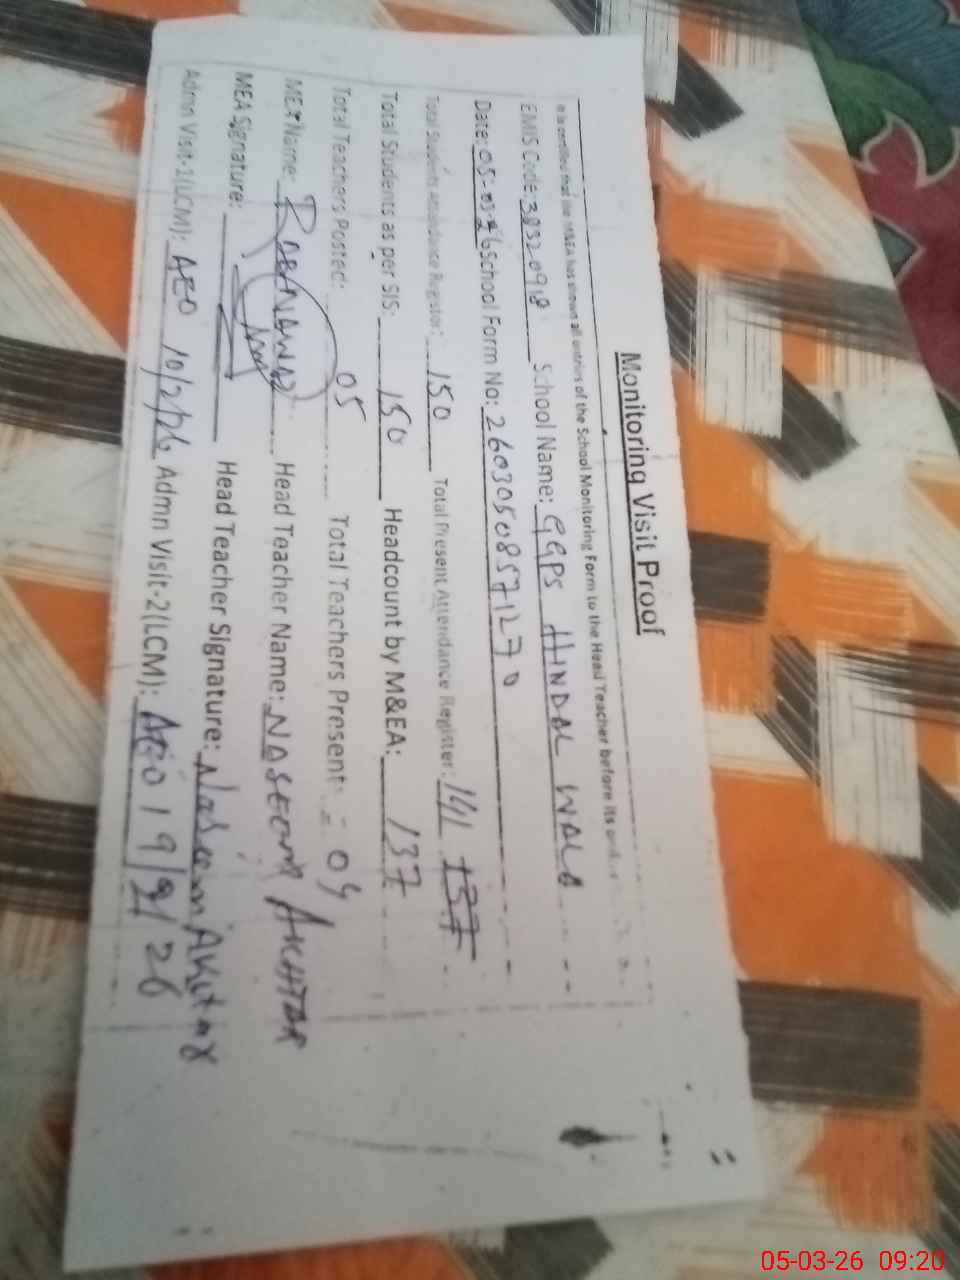 Monitoring Visit Proof
It is certified that the M&EA has shown all entries of the School Monitoring Form to the Head Teacher before its
EMIS Code: 38320918 School Name: GGPS HINDAL WALA
Date: 05-03-26 School Form No: 26030508571270
Total Students Attendance Register: 150 Total Present Attendance Register: 141 137
Total Students as per SIS: 150 Headcount by M&EA: 137
Total Teachers Posted: 05 Total Teachers Present: = 04
MEA Name: RABNAWAZ Head Teacher Name: NASEEM AKHTAR
MEA Signature: Head Teacher Signature: Naseem Akhtar
Admn Visit-1(LCM): AEO 10/2/26 Admn Visit-2(LCM): AEO 19/2/26
05-03-26 09:20